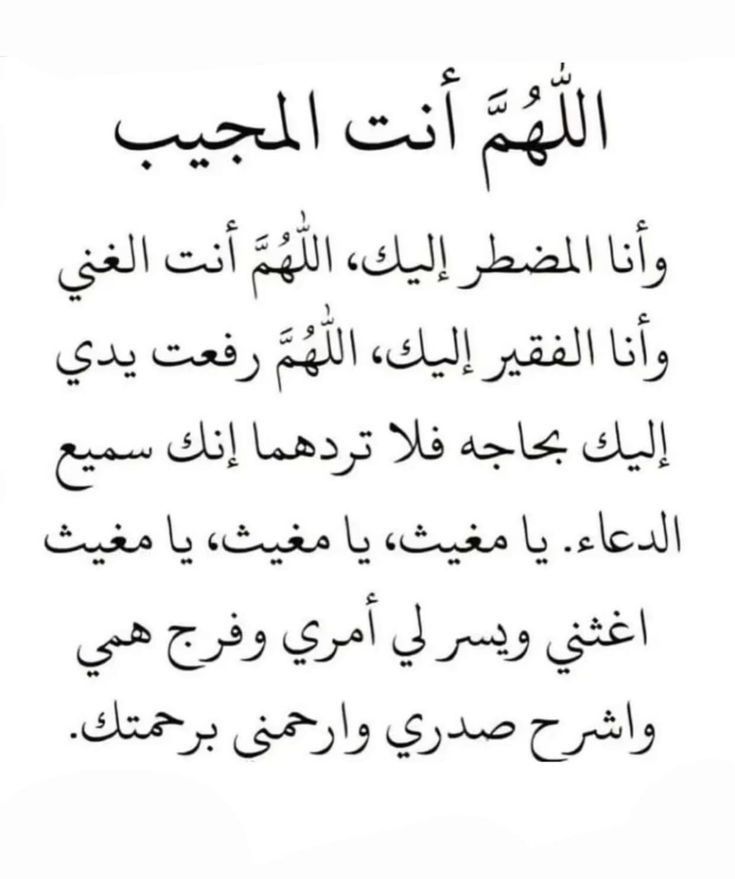 اللَّهُمَّ أنت المجيب
وأنا المضطر إليك، اللَّهُمَّ أنت الغني
وأنا الفقير إليك، اللَّهُمَّ رفعت يدي
إليك بحاجه فلا تردهما إنك سميع
الدعاء. يا مغيث، يا مغيث، يا مغيث
اغثني ويسر لي أمري وفرج همي
واشرح صدري وارحمني برحمتك.